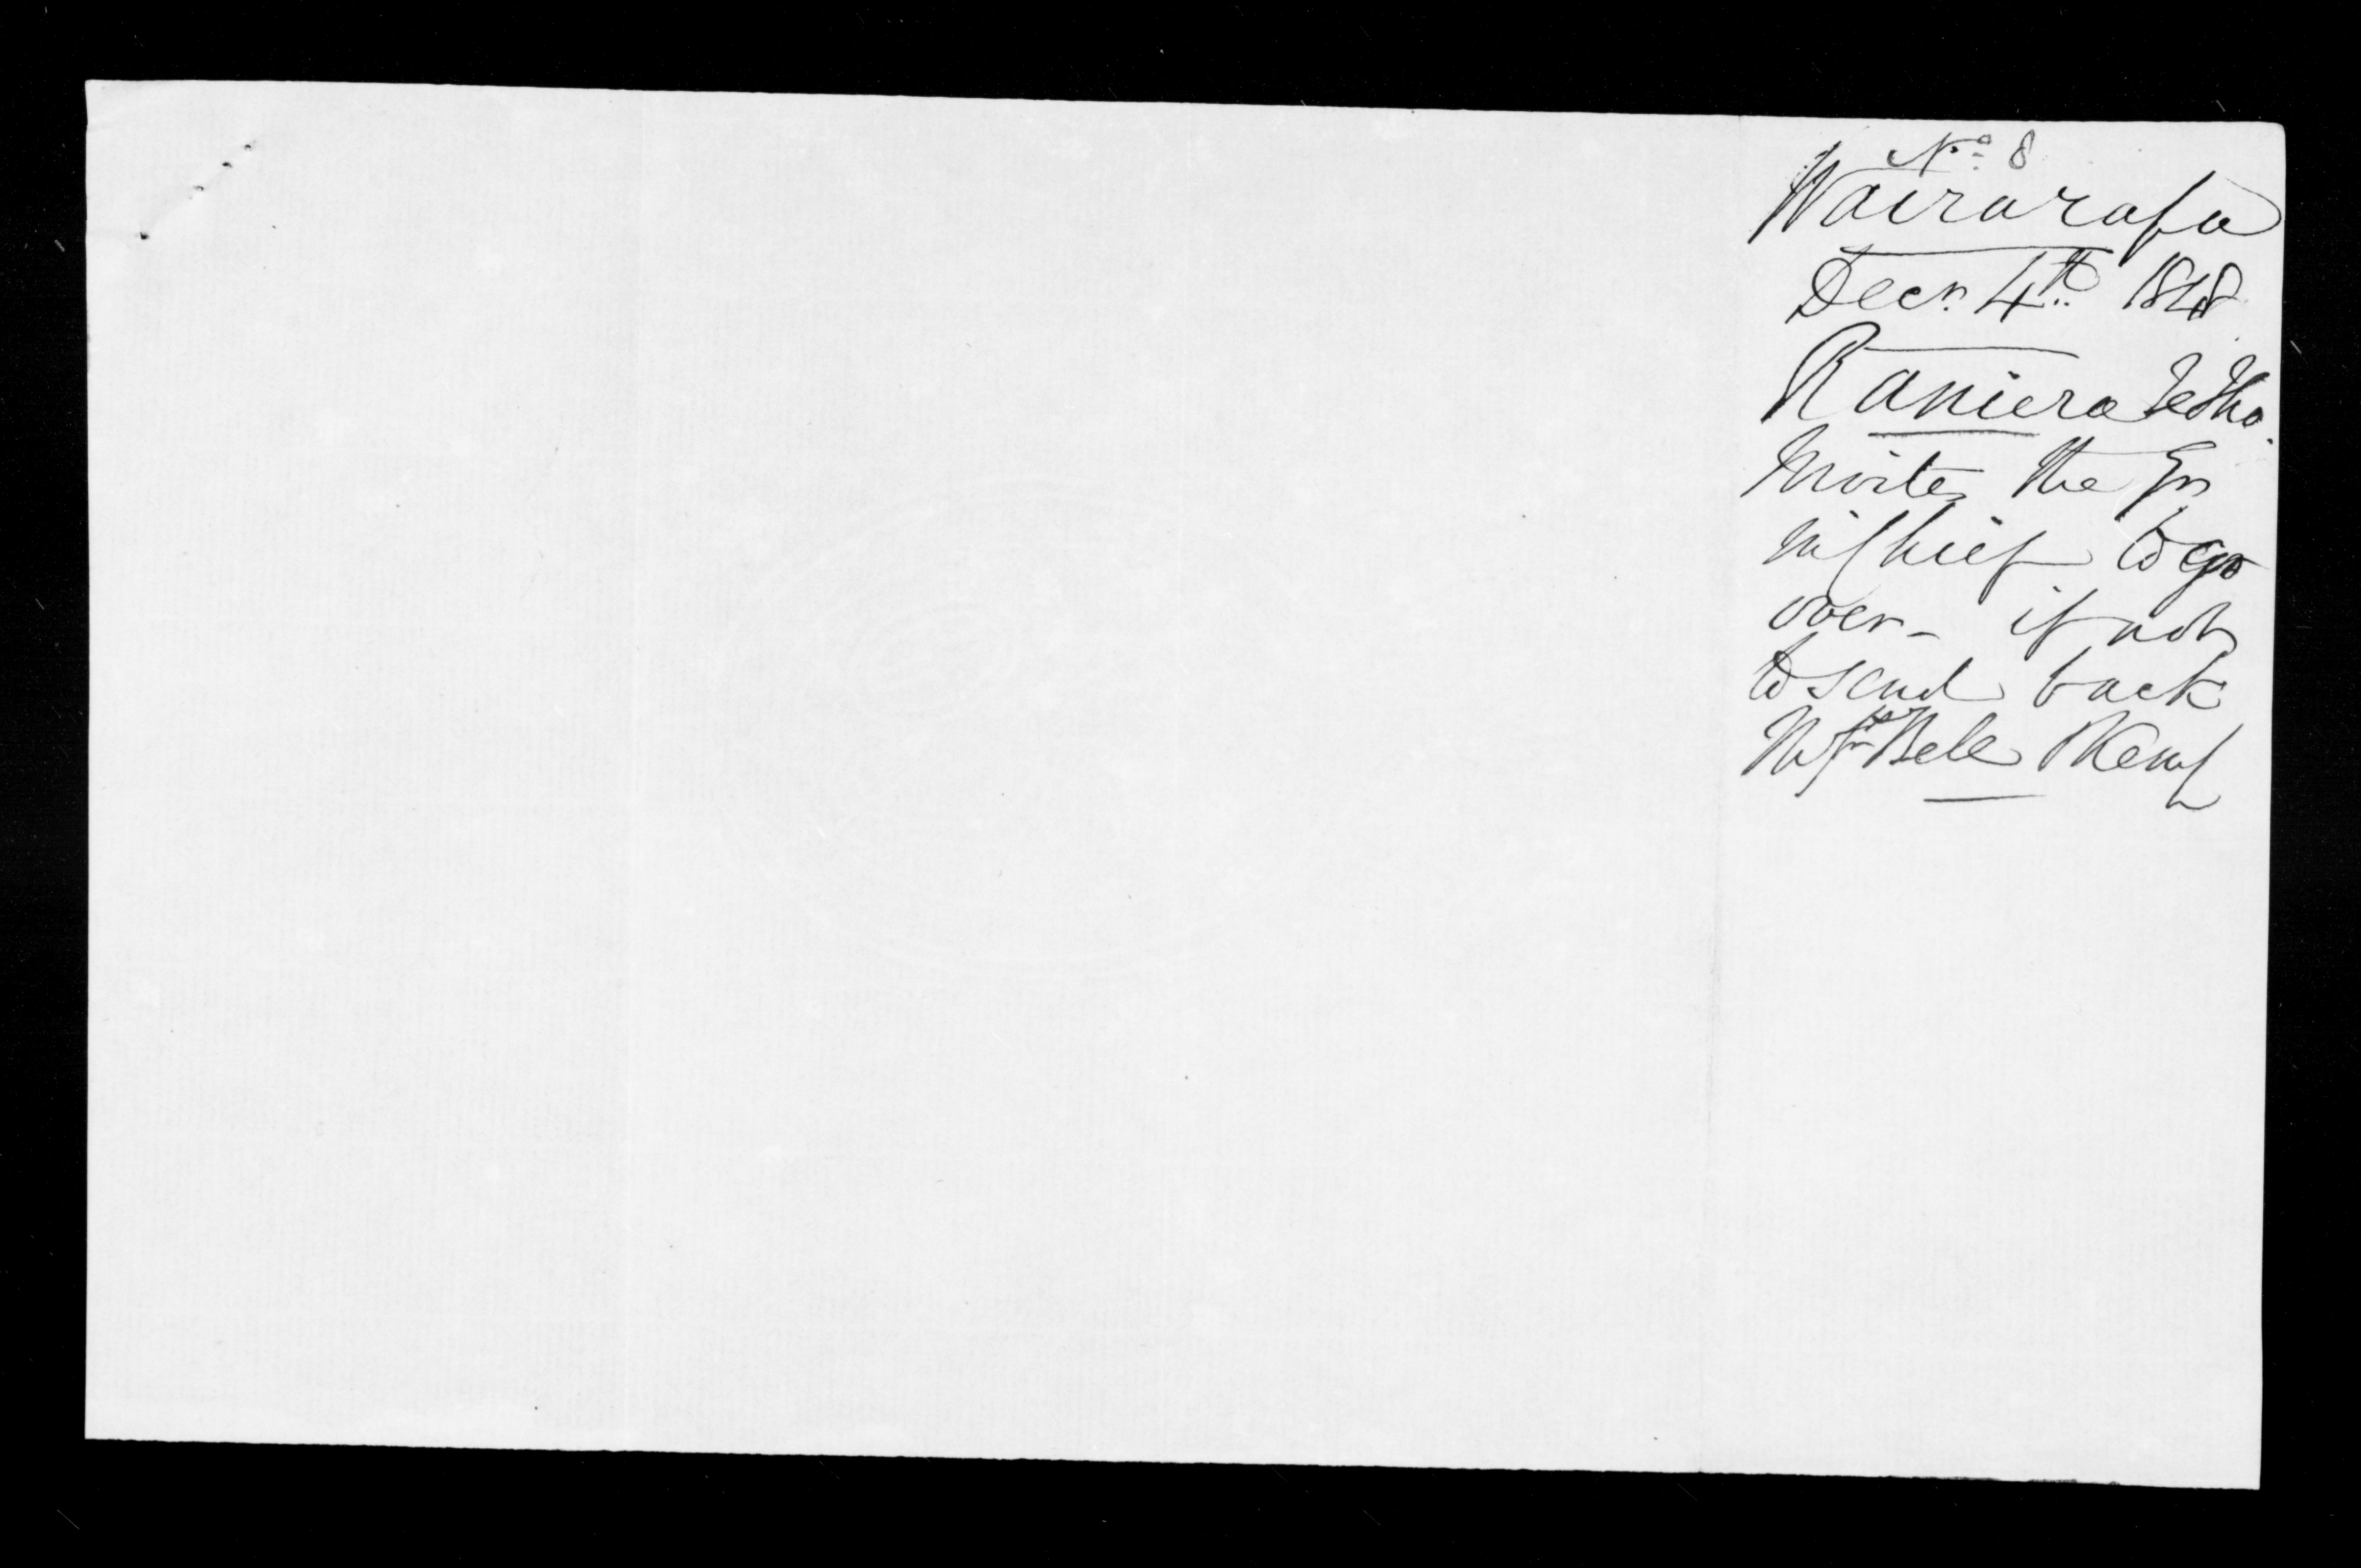 No. 8
Wairarapa
Decr. 4th 1848
Raniera Te Iho.
Invites the Gr
in Chief to go
over - if not
to send back
Bell Kemp